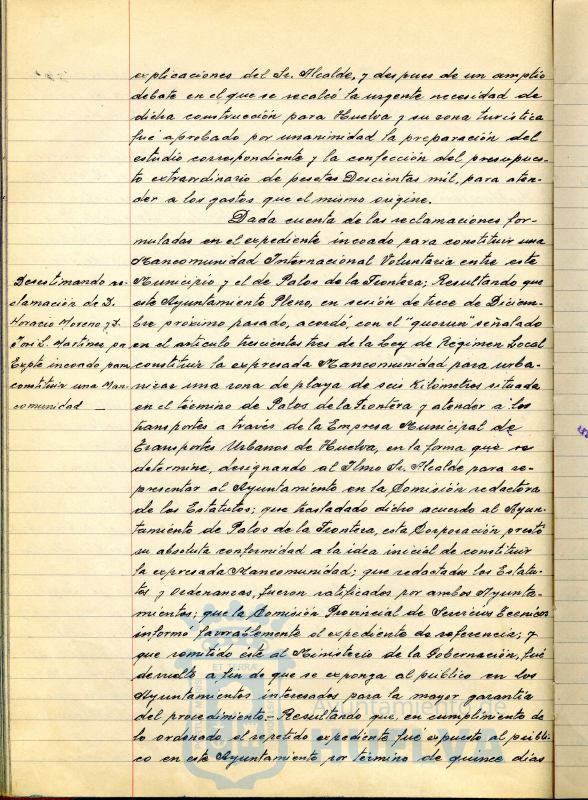 explicaciones del Sr. Alcalde, y despues de un amplio
debate en el que se recalcó la urgente necesidad de
dicha construcción para Huelva y su zona turística
fué aprobado por unanimidad la preparación del
estudio correspondiente y la confección del presupues-
to extraordinario de pesetas Doscientas mil, para aten-
der a los gastos que el mismo origine.
Dada cuenta de las reclamaciones for-
muladas en el expediente incoado para constituir una
Mancomunidad Internacional Voluntaria entre este
Municipio y el de Palos de la Frontera; Resultando que
este Ayuntamiento Pleno, en sesión de trece de Diciem-
bre próximo pasado, acordó, con el "quorum" señalado
en el artículo trescientos tres de la Ley de Régimen Local
constituir la expresada Mancomunidad para urba-
nizar una zona de playa de seis Kilómetros situada
en el término de Palos de la Frontera y atender a los
transportes a través de la Empresa Municipal de
Transportes Urbanos de Huelva, en la forma que se
determine, designando al Ilmo Sr. Alcalde para re-
presentar al Ayuntamiento en la Comisión redactora
de los Estatutos; que trasladado dicho acuerdo al Ayun-
tamiento de Palos de la Frontera, esta Corporación prestó
su absoluta conformidad a la idea inicial de constituir
la expresada Mancomunidad; que redactados los Estatu-
tos y Ordenanzas, fueron ratificados por ambos Ayunta-
mientos; que la Comisión Provincial de Servicios Tecnicos
informó favorablemente el expediente de referencia; y
que remitido éste al Ministerio de la Gobernación, fué
devuelto a fin de que se exponga al público en los
Ayuntamientos interesados para la mayor garantía
del procedimiento. Resultando que, en cumplimiento de
lo ordenado el repetido expediente fué expuesto al públi-
co en este Ayuntamiento por término de quince días
Desestimando re-
clamación de D.
Horacio Moreno y D.
José L. Martinez en
Expte incoado para
constituir una Man-
comunidad _
Ayuntamiento de
HUELVA